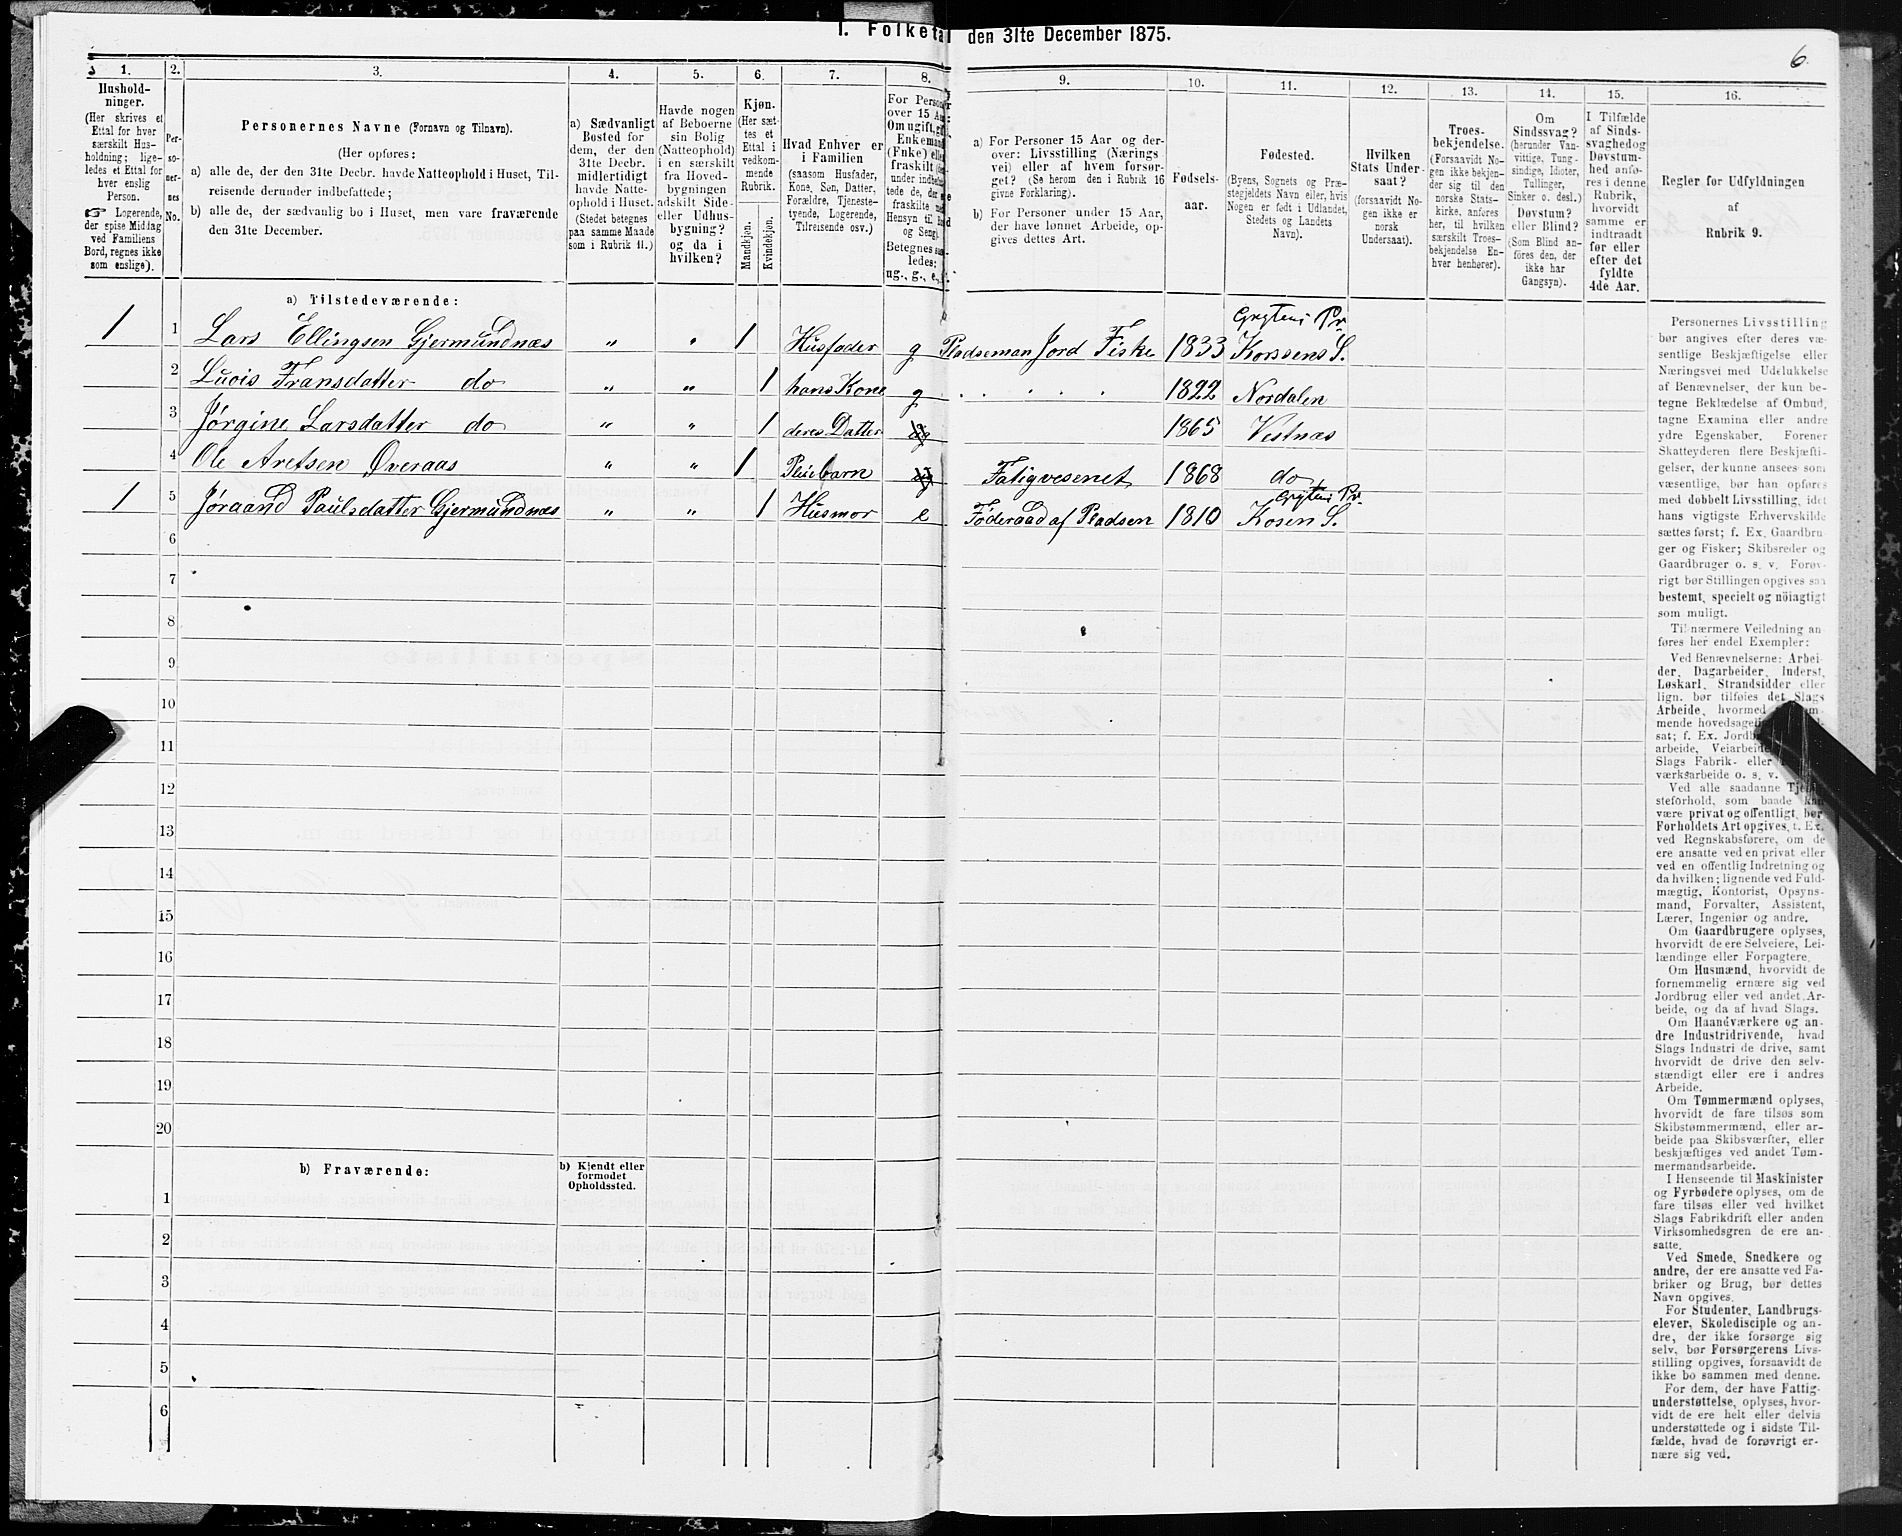 I. Folketal den 31te December 1875.
6.
1.
Hushold-
ninger.
(Her skrives et
Ettal for hver
særskilt Hus-
holdning; lige-
ledes et Ettal for
hver enslig
Person.
☞ Logerende,
der spise Middag
ved Familiens
Bord, regnes ikke
som enslige).
2.
Per-
so-
ner-
nes
No.
3.
Personernes Navne (Fornavn og Tilnavn).
(Her opføres:
a) alle de, der den 31te Decbr. havde Natteophold i Huset, Til-
reisende derunder indbefattede;
b) alle de, der sædvanlig bo i Huset, men vare fraværende
den 31te December.
4.
a) Sædvanligt
Bosted for
dem, der den
31te Decbr.
midlertidigt
havde Natte-
ophold i Huset.
(Stedet betegnes
paa samme Maade
som i Rubrik 11.)
5.
Havde nogen
af Beboerne
sin Bolig
(Natteophold)
i en særskilt
fra Hoved-
bygningen
adskilt Side-
eller Udhus-
bygning?
og da i
hvilken?
6.
Kjøn.
(Her sæt-
tes et
Ettal i
vedkom-
mende
Rubrik.
Mandkjøn.
Kvindekjøn.
7.
Hvad Enhver er
i Familien
(saasom Husfader,
Kone, Søn, Datter,
Forældre, Tjeneste-
tyende, Logerende,
Tilreisende osv.)
8.
For Person
over 15 Aar
Om ugift, gift
Enkemand
(Enke) eller
fraskilt
Betegnes
ledes:
ug., g., e.,
9.
a) For Personer 15 Aar og der-
over: Livsstilling (Nærings
vei) eller af hvem forsør-
get? (Se herom den i Rubrik 16
givne Forklaring).
b) For Personer under 15 Aar,
der have lønnet Arbeide, op-
gives dettes Art.
10.
Fødsels-
aar.
11.
Fødested.
(Byens, Sognets og Præ-
stegjeldets Navn eller, hvis
Nogen er født i Udlandet,
Stedets og Landets
Navn).
12.
Hvilken
Stats Under-
saat?
(forsaavidt No-
gen ikke er
norsk
Undersaat).
13.
Troes-
bekjendelse.
(Forsaavidt No-
gen ikke bekjen-
der sig til den
norske Stats-
kirke, anføres
her, til hvilken
særskilt Troes-
bekjendelse En-
hver henhører).
14.
Om
Sindssvag?
(herunder Van-
vittige, Tung-
sindige, Idioter,
Tullinger,
Sinker o. desl.)
Døvstum?
eller Blind?
(Som Blind an-
føres den, der
ikke har
Gangsyn).
15.
I Tilfælde
af Sinds-
svaghed og
Døvstum-
hed anfø-
res i denne
Rubrik,
hvorvidt
samme er
indtraadt
før eller
efter det
fyldte
4de Aar.
16.
Regler for Udfyldningen
af
Rubrik 9.
a) Tilstedeværende:
1 1 Lars Ellingsen Gjermundnæs „ „ 1 Husfader g Pladseman Jord Fiske 1833 Grytens Pr. Korssens S.
2 Lucis Fransdatter do „ „ 1 hans Kone g . . . . 1822 Nordalen
3 Jørgine Larsdatter do „ „ 1 deres Datter ug 1865 Vestnæs
4 Ole Aretsen Øveraas „ „ 1 Pleiebarn ug Fatigvesenet 1868 do
1 5 Jøraand Paulsdatter Gjermundnæs „ „ 1 Husmor e Føderaad af Pladsen 1810 Grytens Pr. Kosen S.
6
7
8
9
10
11
12
13
14
15
16
17
18
19
20
b) Fraværende:
b) Kjendt eller
formodet
Opholdssted.
1
2
3
4
5
6
Personernes Livsstilling
bør angives efter deres væ-
sentlige Beskjæftigelse eller
Næringsvei med Udelukkelse
af Benævnelser, der kun be-
tegne Beklædelse af Ombud,
tagne Examina eller andre
ydre Egenskaber. Forener
Skatteyderen flere Beskjæfti-
gelser, der kunne ansees som
væsentlige, bør han opføres
med dobbelt Livsstilling, idet
hans vigtigste Erhvervskilde
sættes først; f. Ex. Gaardbru-
ger og Fisker; Skibsreder og
Gaardbruger o. s. v. Forøv-
rigt bør Stillingen opgives saa
bestemt, specielt og nöiagtigt
som muligt.
Til nærmere Veiledning an-
føres her endel Exempler:
Ved Benævnelserne: Arbei-
der, Dagarbeider, Inderst,
Løskarl, Strandsidder eller
lign. bør tilføies det Slags
Arbeide, hvormed
mende hovedsagelig
sat; f. Ex. Jord
arbeide, Veiarbeide
Slags Fabrik- eller
værksarbeide o. s. v.
Ved alle saadanne Tjene-
steforhold, som baade kan
være privat og offentligt, bør
Forholdets Art opgives, t. Ex.
ved Regnskabsførere, om de
ere ansatte ved en privat eller
ved en offentlig Indretning og
da hvilken; lignende ved Fuld-
mægtig, Kontorist, Opsyns-
mand, Forvalter, Assistent,
Lærer, Ingeniør og andre.
Om Gaardbrugere oplyses,
hvorvidt de ere Selveiere, Lei-
lændinge eller Forpagtere.
Om Husmænd, hvorvidt de
fornemmelig ernære sig ved
Jordbrug eller ved andet Ar-
beide, og da af hvad Slags.
Om Haandværkere og an-
dre Industridrivende, hvad
Slags Industri de drive, samt
hvorvidt de drive den selv-
stændigt eller ere i andres
Arbeide.
Om Tømmermænd oplyses,
hvorvidt de fare tilsøs som
Skibstømmermænd, eller ar-
beide paa Skibsværfter, eller
beskjæftiges ved andet Tøm-
mermandsarbeide.
I Henseende til Maskinister
og Fyrbødere oplyses, om de
fare tilsøs eller ved hvilket
Slags Fabrikdrift eller anden
Virksomhedsgren de ere an-
satte.
Ved Smede, Snedkere og
andre, der ere ansatte ved Fa-
briker og Brug, bør dettes
Navn opgives.
For Studenter, Landbrugs-
elever, Skoledisciple og an-
dre, der ikke forsørge sig
selv, bør Forsørgerens Livs-
stilling opgives, forsaavidt de
ikke bo sammen med denne.
For dem, der have Fattig-
understøttelse, oplyses, hvor-
vidt de ere helt eller delvis
understøttede og i sidste Til-
fælde, hvad de forøvrigt er-
nære sig ved.